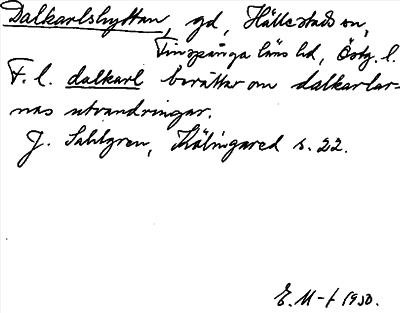 Dalkarlshyttan, gd, Hällestads sn,
Finspånga läns hd, Östg. l.
F. l. dalkarl berättar om dalkarlar-
nas utvandringar.
J. Sahlgren, Hälingared s. 22.
E. M-f 1950.